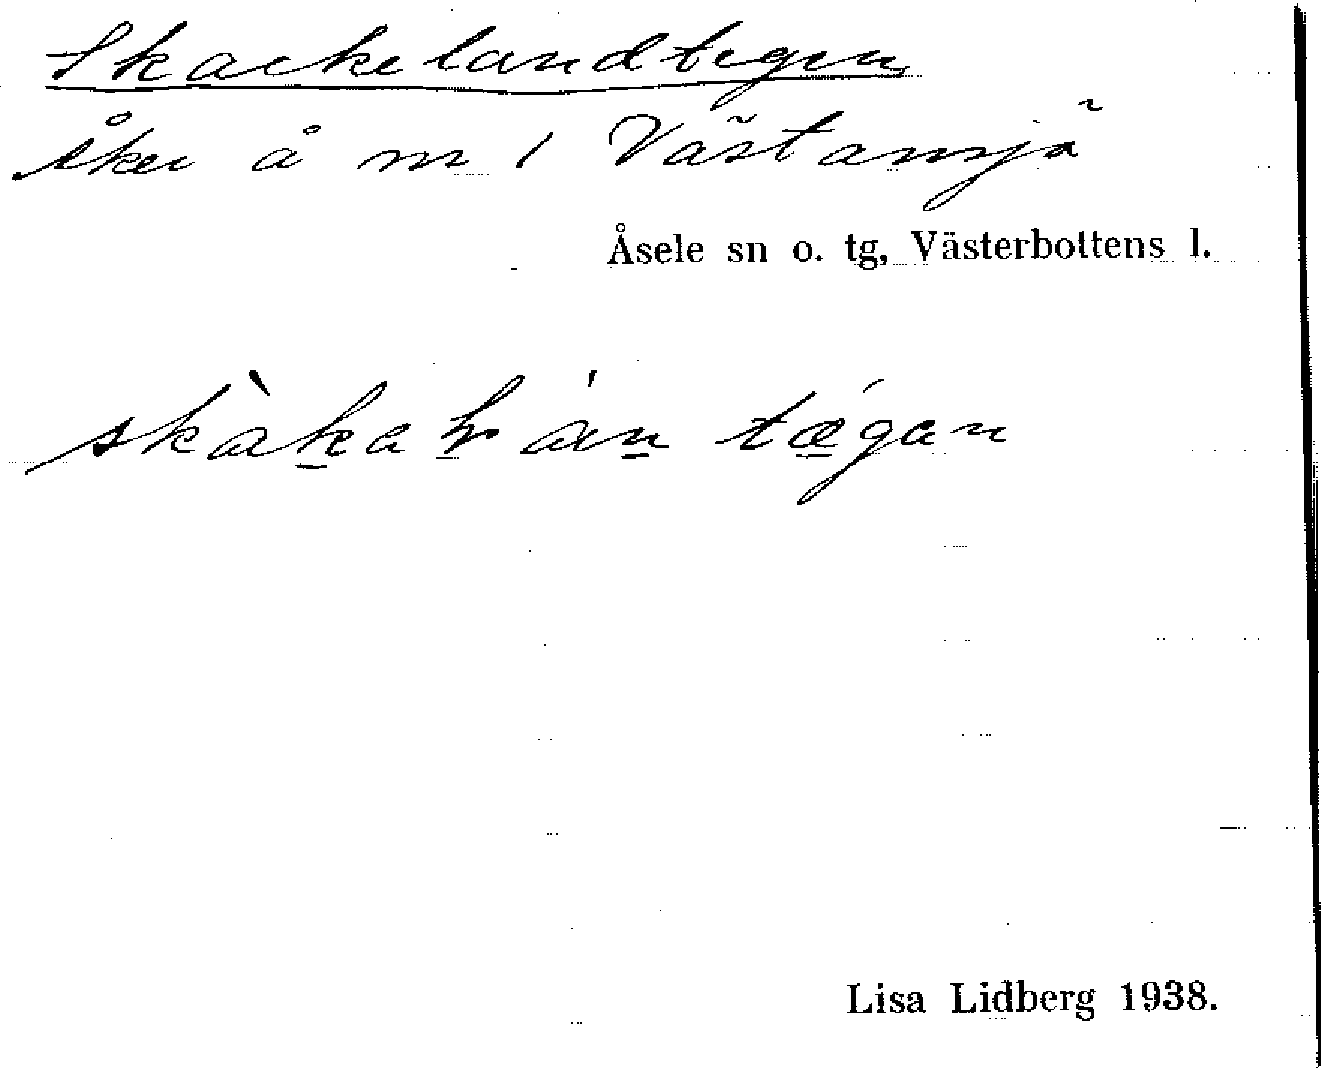 Skackelandtegen
åker å nr 1 Västansjö
Åsele sn o. tg, Västerbottens l.
skàkaḷán tǽgan
Lisa Lidberg 1938.